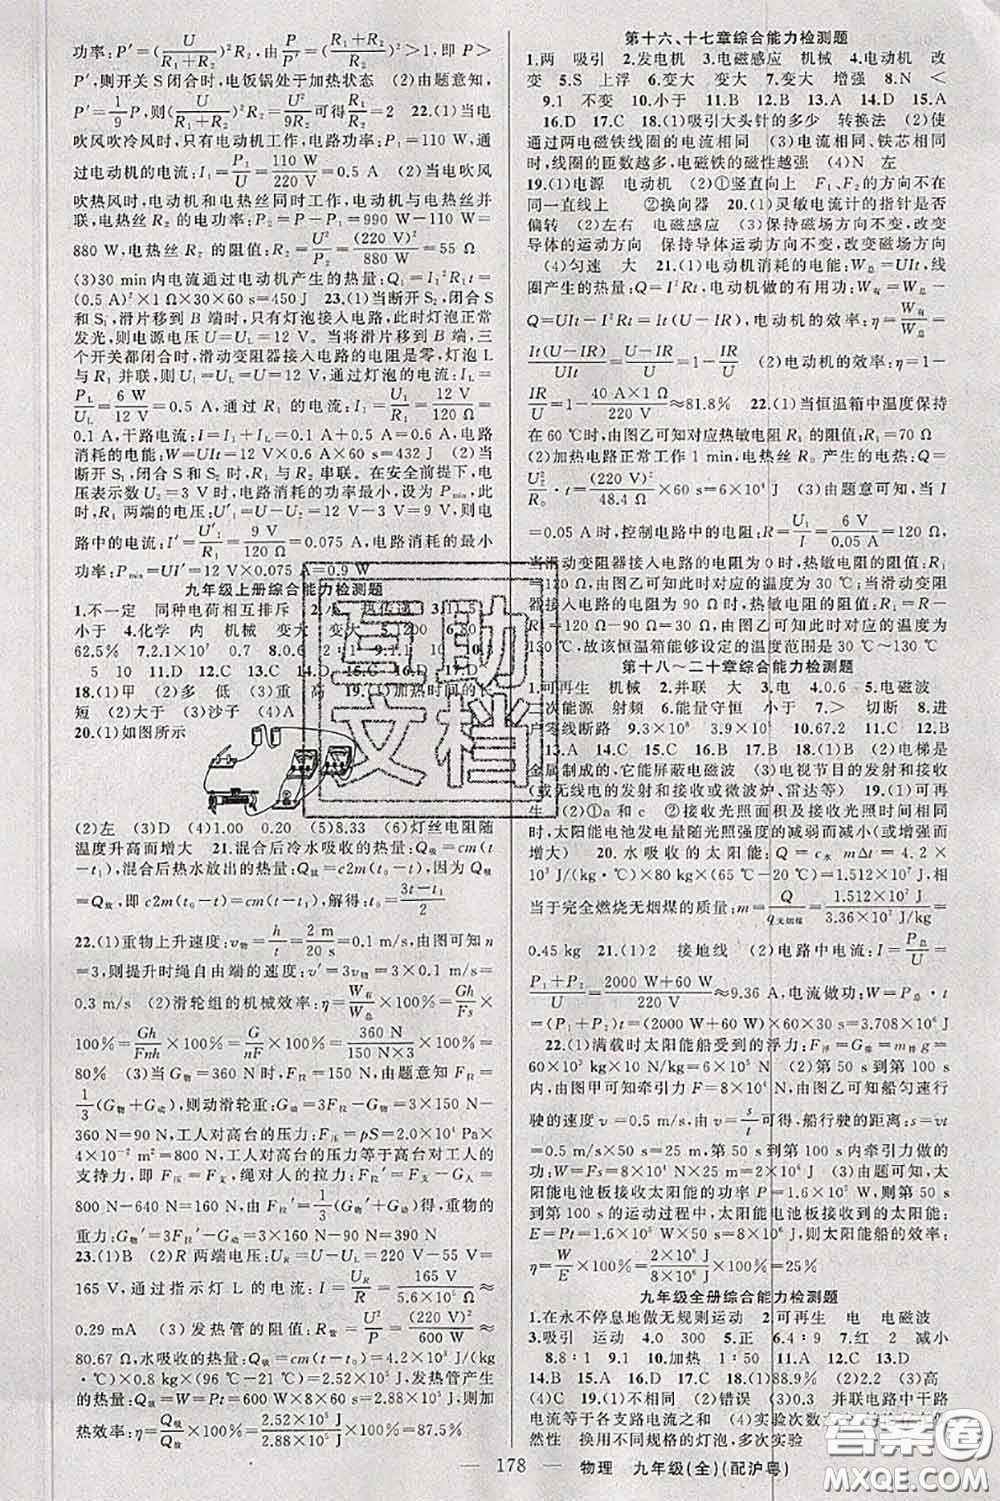 功率:P′=(U/(R₁+R₂))²R₂,由P/P′=((R₁+R₂)/R₂)²>1,即 P>
P′,则开关 S 闭合时,电饭锅处于加热状态 (2)由题意知,
P′=1/9 P,则(U/(R₁+R₂))²R₂=U²/9R₂ 可得 22.(1)当电
吹风吹冷风时,只有电动机工作,电路功率:P₁=110 W,通
过电动机的电流:I₁=P₁/U=110 W/220 V=0.5 A (2)当电吹风
吹热风时,电动机和电热丝同时工作,电动机与电热丝并
联,电热丝 R₂ 的电功率:P₂=P−P₁=990 W−110 W=
880 W,电热丝 R₂ 的阻值:R₂=U²/P₂=(220 V)²/880 W=55 Ω
(3)30 min 内电流通过电动机产生的热量:Q₁=I₁²R₁t=
(0.5 A)²×1 Ω×30×60 s=450 J 23.(1)当断开 S₂,闭合 S
和 S₁,滑片移到 B 端时,只有灯泡接入电路,此时灯泡正常
发光,则电源电压 U=U_L=12 V 当将滑片移到 B 端,三
个开关都闭合时,滑动变阻器接入电路的电阻是零,灯泡 L
与 R₁ 并联,则 U₁=U_L=U=12 V,通过灯泡的电流:I_L=
P_L/U_L=6 W/12 V=0.5 A,通过 R₁ 的电流:I₁=U/R₁=12 V/120 Ω=
0.1 A,干路电流:I=I₁+I_L=0.1 A+0.5 A=0.6 A,电路
消耗的电能:W=UIt=12 V×0.6 A×60 s=432 J (2)当
断开 S₁,闭合 S 和 S₂时,R₁ 与 R₂ 串联。在安全前提下,电
压表示数 U₂=3 V 时,电路消耗的功率最小,设为 Pmin,此
时,R₁ 两端的电压:U′₁=U−U₂=12 V−3 V=9 V,则电
路中的电流:I′=U′₁/R₁=9 V/120 Ω=0.075 A,电路消耗的最小
功率:Pmin=UI′=12 V×0.075 A=0.9 W
九年级上册综合能力检测题
1.不一定 同种电荷相互排斥
小于 4.化学 内 机械 变大 变大
62.5% 7.2.1×10⁷ 0.7 8.0.6
5 10 11.D 12.C 13.C 14.D 15.C 16.D 17.D
18.(1)甲 (2)多 低 (3)重 高 19.(1)加热时间的长
短 (2)大于 (3)沙子 (4)A
20.(1)如图所示
(2)左 (3)D (4)1.00 0.20 (5)8.33 (6)灯丝电阻随
温度升高而增大 21.混合后冷水吸收的热量:Q吸=cm(t
−t₁),混合后热水放出的热量:Q放=c2m(t₀−t),因为 Q吸
=Q放,即 c2m(t₀−t)=cm(t−t₁),解得:t₀=(3t−t₁)/2
22.(1)重物上升速度:v物=h/t=2 m/20 s=0.1 m/s,由图可知 n
=3,则提升时绳自由端的速度:v′=3v物=3×0.1 m/s=
0.3 m/s (2)滑轮组的机械效率:η=W有/W总×100%=Gh/Fs×
100%=Gh/Fnh×100%=G/nF×100%=360 N/(150 N×3)×100%=
80% (3)当 G物=360 N 时,F拉=150 N,由题意知 F拉=
1/3(G物+G动),则动滑轮重:G动=3F拉−G物=3×150 N−
360 N=90 N,工人对高台的压力:F压=pS=2.0×10⁴ Pa×
4×10⁻² m²=800 N,工人对高台的压力等于高台对工人的
支持力,即 F压=F支,绳对人的拉力:F拉′=F支−G人=
800 N−640 N=160 N,由 F拉′=1/3(G物′+G动)得,重物的重
力:G物′=3F拉′−G动=3×160 N−90 N=390 N
23.(1)B (2)R 两端电压:U_R=U−U_L=220 V−55 V=
165 V,通过指示灯 L 的电流:I=U_R/R=165 V/(5.6×10⁵ Ω)≈
0.29 mA (3)发热管的阻值:R管=U²/P=(220 V)²/600 W≈
80.67 Ω,水吸收的热量:Q吸=cm(t−t₀)=4.2×10³ J/(kg·
℃)×0.8 kg×(96 ℃−21 ℃)=2.52×10⁵ J,发热管产生
的热量:Q放=W=Pt=600 W×8×60 s=2.88×10⁵ J,则加
热效率:η=Q吸/Q放=2.52×10⁵ J/2.88×10⁵ J×100%=87.5%
第十六、十七章综合能力检测题
1.两 吸引 2.发电机 3.电磁感应 机械 4.电动机 改
变 5.S 上浮 6.变大 变大 7.变大 增强 8.N <
9.1 不变 10.小于 11.B 12.B 13.A 14.D 15.A
16.D 17.C 18.(1)吸引大头针的多少 转换法 (2)使
通过两电磁铁线圈的电流相同 (3)电流相同、铁芯相同
时,线圈的匝数越多,电磁铁的磁性越强 (4)N 左
19.(1)电源 电动机 (2)①竖直向上 F₁、F₂ 的方向不在
同一直线上 ②换向器 20.(1)灵敏电流计的指针是否
偏转 (2)左右 电磁感应 (3)保持磁场方向不变,改变
导体的运动方向 保持导体运动方向不变,改变磁场方向
(4)匀速 大 21.(1)电动机消耗的电能:W总=UIt,线
圈产生的热量:Q=I²Rt,电动机做的有用功:W有=W总−
Q=UIt−I²Rt=It(U−IR),电动机的效率:η=W有/W总=
It(U−IR)/UIt=(U−IR)/U=1−IR/U (2)电动机的效率:η=1−
IR/U=1−(40 A×1 Ω)/220 V≈81.8% 22.(1)当恒温箱中温度保持
在 60 ℃时,由图乙可知对应热敏电阻 R₁ 的阻值:R₁=70 Ω
(2)加热电路正常工作 1 min,电热丝 R₀ 产生的电热:Q=
U₂²/R₀·t=(220 V)²/48.4 Ω×60 s=6×10⁴ J (3)由题意可知,当 I
=0.05 A 时,控制电路中的电阻:R=U₁/I=6 V/0.05 A=120 Ω,
当滑动变阻器接入电路的电阻为 0 时,热敏电阻为 120 Ω,
由图乙可知此时对应的温度为 30 ℃;当滑动变阻器
R−R₁=120 Ω−90 Ω=30 Ω,由图乙可知此时对应的温度为
130 ℃,故该恒温箱能够设定的温度范围是 30 ℃~130 ℃
第十八~二十章综合能力检测题
1.可再生 机械 2.并联 大 3.电 4.0.6 5.电磁波
二次能源 射频 6.能量守恒 小于 7.> 切断 8.进
户零线断路 9.3×10⁸ 3.9×10⁵ 10.67.2 11.C 12.B
13.A 14.C 15.C 16.C 17.B 18.(1)B (2)电梯是
金属制成的,它能屏蔽电磁波 (3)电视节目的发射和接收
(或无线电的发射和接收或微波炉、雷达等) 19.(1)可再
生 (2)①a 和 c ②接收光照面积及接收光照时间相同
时,太阳能电池发电量随光照强度的减弱而减小(或增强而
增大) 20.水吸收的太阳能:Q=c水mΔt=4.2×
10³ J/(kg·℃)×80 kg×(65 ℃−20 ℃)=1.512×10⁷ J,相
当于完全燃烧无烟煤的质量:m=Q/q无烟煤=1.512×10⁷ J/(3.36×10⁷ J/kg)=
0.45 kg 21.(1)2 接地线 (2)电路中电流:I=P总/U=
(P₁+P₂)/U=(2000 W+60 W)/220 V≈9.36 A,电流做功:W=P总·t
=(P₁+P₂)t=(2000 W+60 W)×60×30 s=3.708×10⁶ J
22.(1)满载时太阳能船受到的浮力:F浮=G总=m总g=
600 kg×10 N/kg=6×10³ N (2)第 50 s 到第 100 s
内,由图甲可知牵引力 F=80 N,由图乙可知船匀速行
驶的速度 v=0.5 m/s,由 v=s/t 可得,船行驶的距离:s=vt
=0.5 m/s×50 s=25 m,第 50 s 到第 100 s 内牵引力做的
功:W=Fs=80 N×25 m=2×10³ J (3)由题意可知,太
阳能电池板接收太阳能的功率 P=1.6×10² W,则第 50 s
到第 100 s 的运动过程中,太阳能电池板接收到的太阳能:
E=Pt=1.6×10² W×50 s=8×10³ J,太阳能船的效率:
η=W/E×100%=2×10³ J/8×10³ J×100%=25%
九年级全册综合能力检测题
1.在永不停息地做无规则运动 2.可再生 电 电磁波
3.吸引 运动 4.0 300 5.正 6.4:9 7.红 2 减小
8.8:1 9.1 10.加热 1:50 11.A 12.C 13.D
14.B 15.A 16.D 17.C 18.(1)88.9% (2)2.2 (3)高
(4)C 19.(1)不相同 (2)错误 (3)0.3 并联电路中干路
电流等于各支路电流之和 (4)实验次数太少,
然性 换用不同规格的灯泡,多次实验
— 178 — 物理 九年级(全)(配沪粤)
互助
文档
答案圈
MXQE.COM